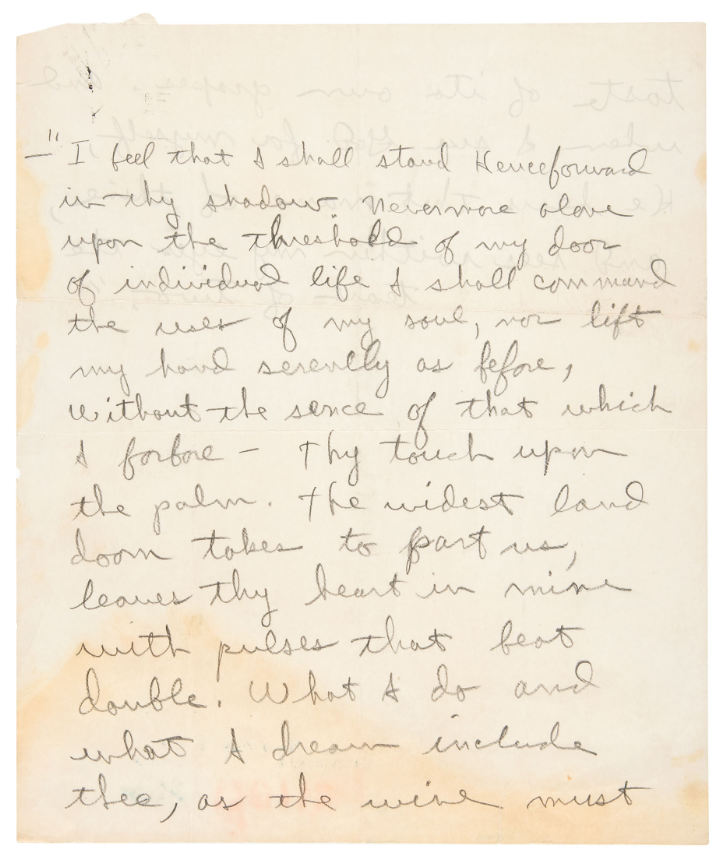 —" I feel that I shall stand Henceforward
in thy shadow. Nevermore alone
upon the threshold of my door
of individual life I shall command
the uses of my soul, nor lift
my hand serenely as fefore,
without the sence of that which
I forfore – Thy touch upon
the palm. The widest land
doom takes to part us,
leaves thy heart in mine
with pulses that beat
double. What I do and
what I dream include
thee, as the wine must